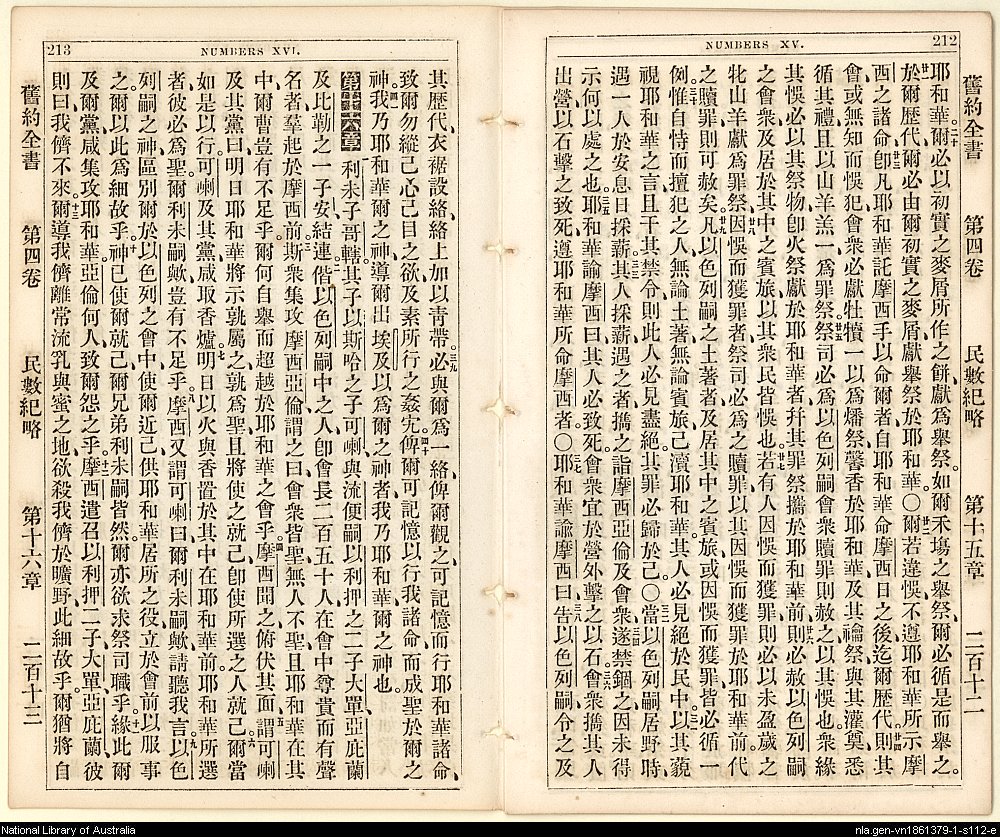 212
NUMBERS XV.
舊約全書 第四卷 民數紀略 第十五章 二百十二
耶和華爾必以初實之麥屑所作之餅獻爲舉祭如爾禾塲之舉祭爾必循是而舉之
於爾歷代爾必由爾初實之麥屑獻舉祭於耶和華〇爾若違悞不遵耶和華所示摩
西之諸命卽凡耶和華託摩西手以命爾者自耶和華命摩西日之後迄爾歷代則其
會或無知而悞犯會衆必獻牡犢一以爲燔祭馨香於耶和華及其禴祭與其灌奠悉
循其禮且以山羊羔一爲罪祭祭司必爲以色列嗣會衆贖罪則赦之以其悞也衆緣
其悞必以其祭物卽火祭獻於耶和華者幷其罪祭擕於耶和華前則必赦以色列嗣
之會衆及居於其中之賓旅以其衆民皆悞也若有人因悞而獲罪則必以未盈歲之
牝山羊獻爲罪祭因悞而獲罪者祭司必爲之贖罪以其因悞而獲罪於耶和華前代
之贖罪則可赦矣凡以色列嗣之土著者及居其中之賓旅或因悞而獲罪皆必循一
例惟自恃而擅犯之人無論土著無論賓旅己瀆耶和華其人必見絕於民中以其藐
視耶和華之言且干其禁令則此人必見盡絕其罪必歸於己〇當以色列嗣居野時
遇一人於安息日採薪其人採薪遇之者擕之詣摩西亞倫及會衆遂禁錮之因未得
示何以處之也耶和華諭摩西曰其人必致死會衆宜於營外擊之以石會衆擕其人
出營以石擊之致死遵耶和華所命摩西者〇耶和華諭摩西曰吿以色列嗣令之及
213
NUMBERS XVI.
其歷代衣裾設繸繸上加以靑帶必與爾爲一繸俾爾觀之可記憶而行耶和華諸命
致爾勿縱己心己目之欲及素所行之姦宄俾爾可記憶以行我諸命而成聖於爾之
神我乃耶和華爾之神導爾出埃及以爲爾之神者我乃耶和華爾之神也
第十六章 利未子哥轄其子以斯哈之子可喇與流便嗣以利押之二子大單亞庇蘭
及比勒之一子安結連偕以色列嗣中之人卽會長二百五十人在會中尊貴而有聲
名者羣起於摩西前斯衆集攻摩西亞倫謂之曰會衆皆聖無人不聖且耶和華在其
中爾曹豈有不足乎爾何自舉而超越於耶和華之會乎摩西聞之俯伏其面謂可喇
及其黨曰明日耶和華將示孰屬之孰爲聖且將使之就己卽使所選之人就己爾當
如是以行可喇及其黨咸取香爐明日以火與香置於其中在耶和華前耶和華所選
者彼必爲聖爾利未嗣歟豈有不足乎摩西又謂可喇曰爾利未嗣歟請聽我言以色
列嗣之神區別爾於以色列之會中使爾近己供耶和華居所之役立於會前以服事
之爾以此爲細故乎神已使爾就己爾兄弟利未嗣皆然爾亦欲求祭司職乎緣此爾
及爾黨咸集攻耶和華亞倫何人致爾怨之乎摩西遣召以利押二子大單亞庇蘭彼
則曰我儕不來爾導我儕離常流乳與蜜之地欲殺我儕於曠野此細故乎爾猶將自
舊約全書 第四卷 民數紀略 第十六章 二百十三
National Library of Australia
nla.gen-vn1861379-1-s112-e